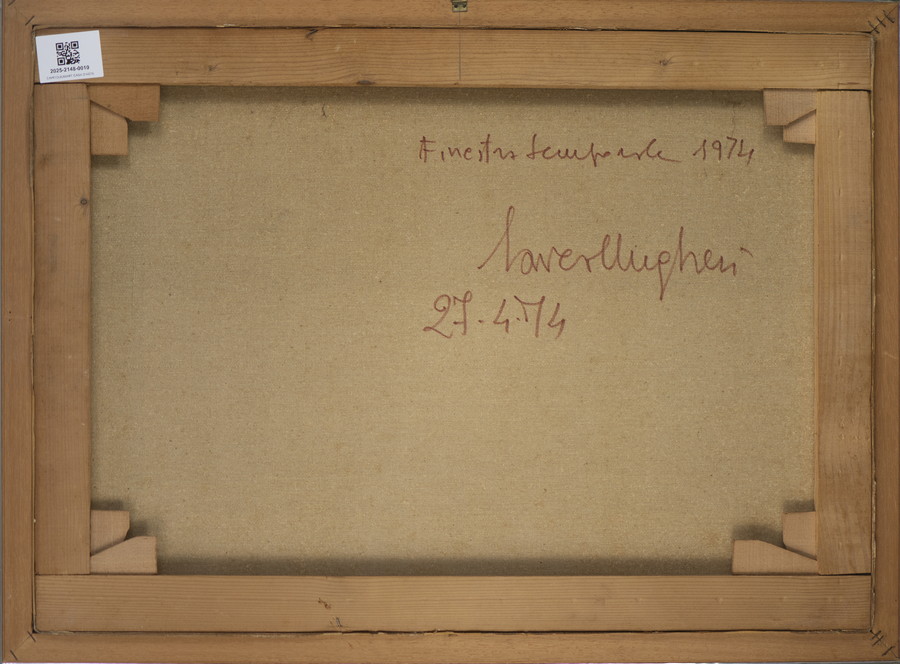 2025-3148-0010
Finestra temporale 1974
Saverllugheri
27.4.74